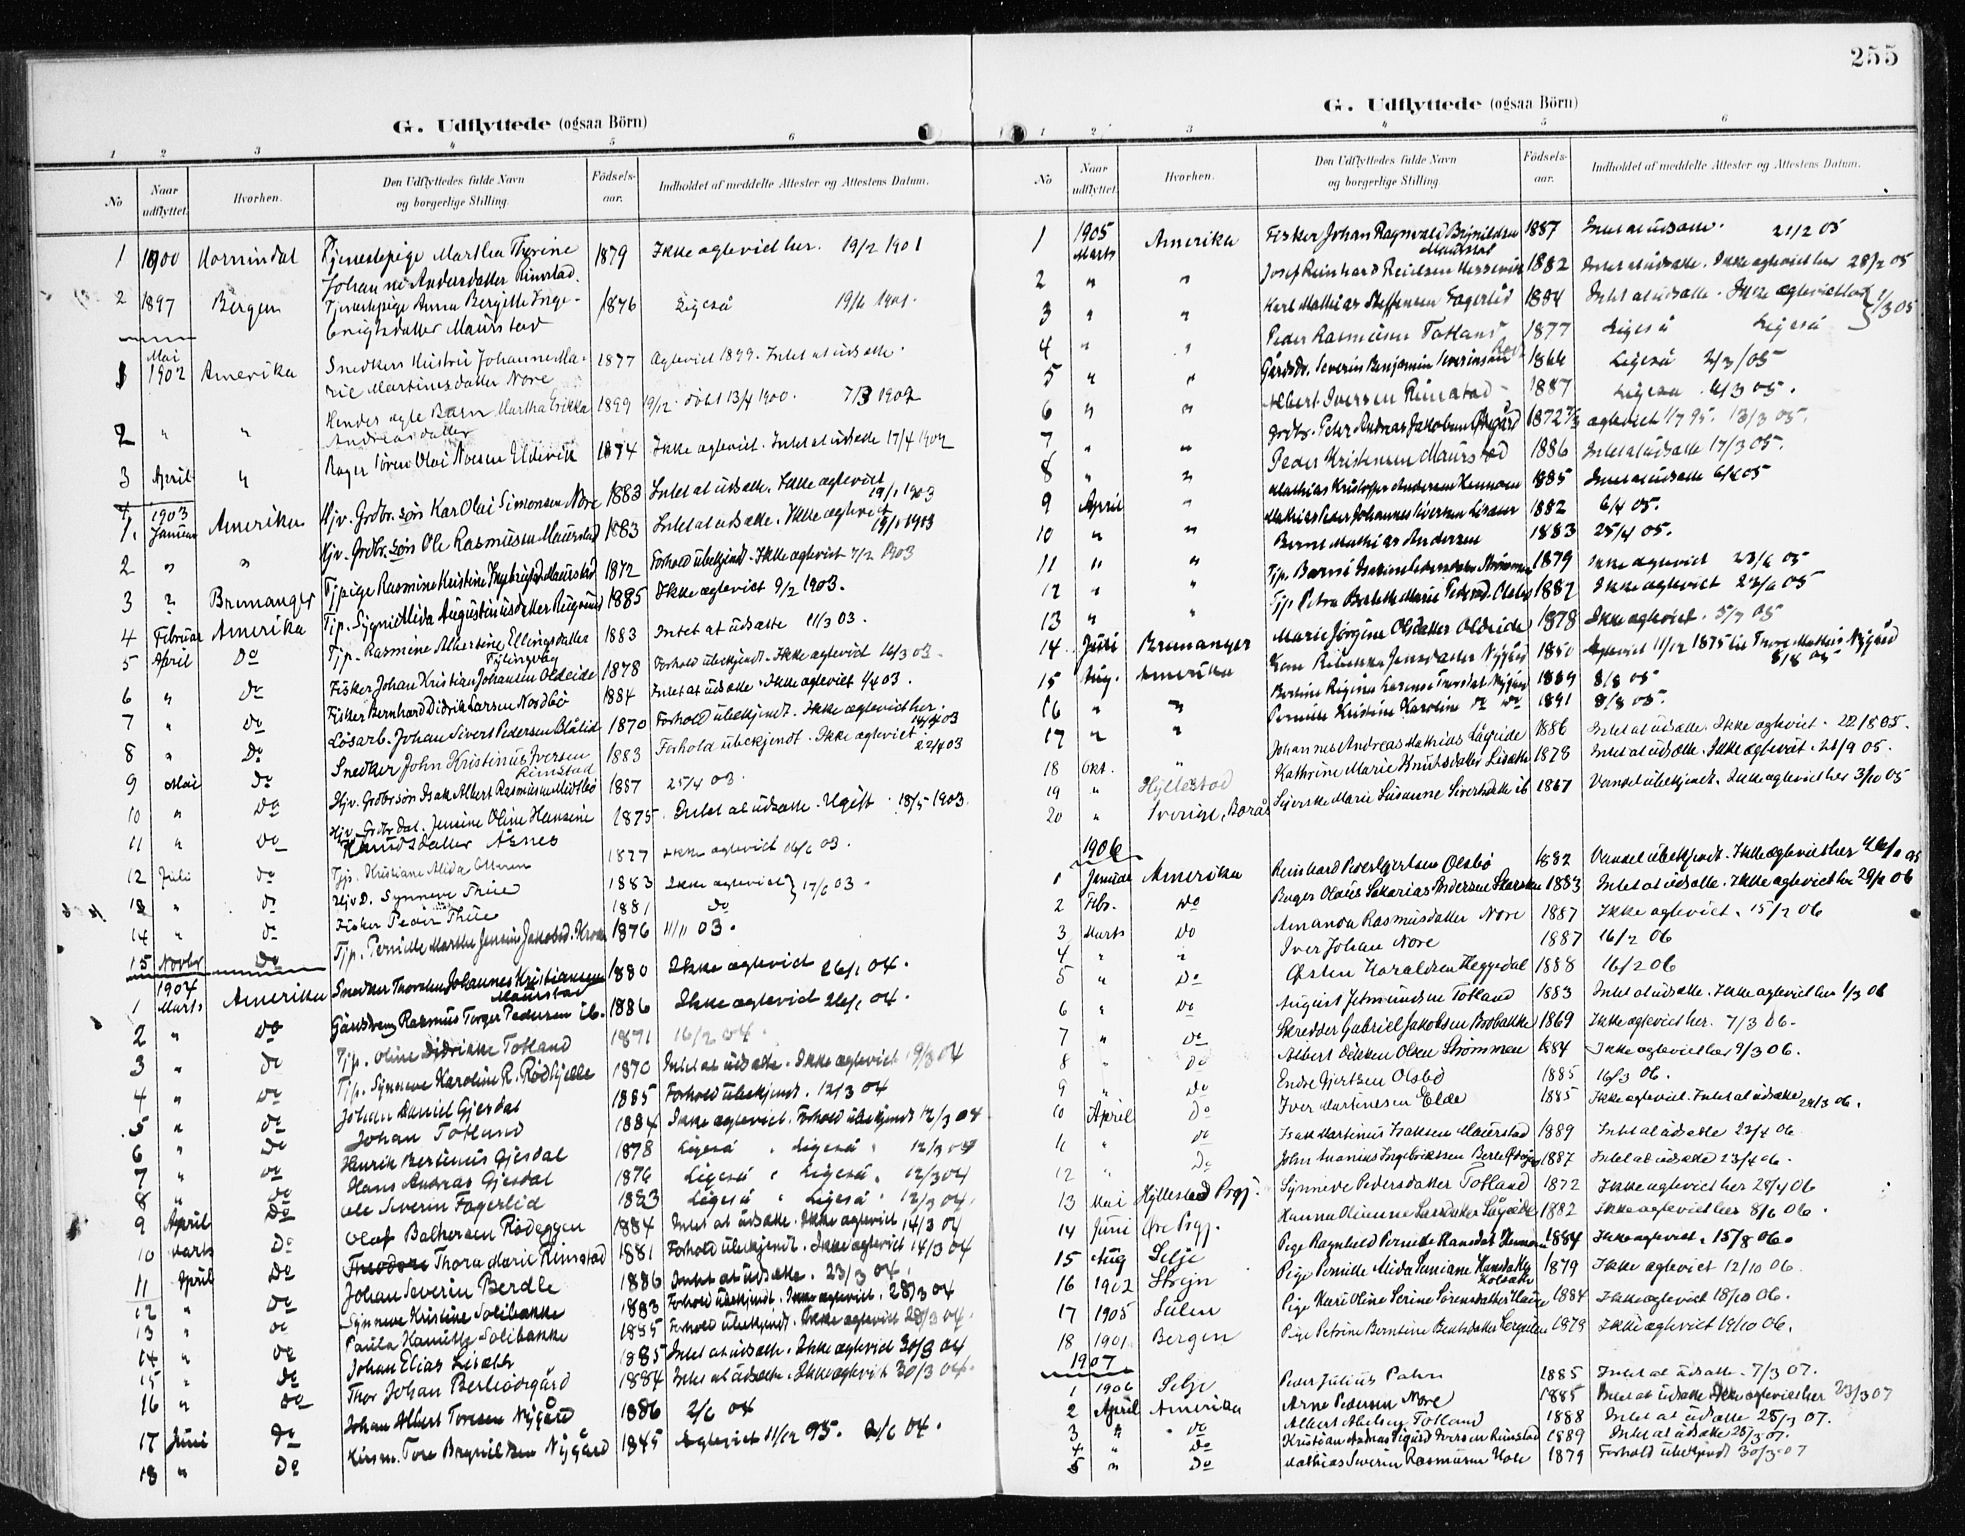 255
G. Udflyttede (ogsaa Börn)
1 2 3 4 5 6
No
Naar udflyttet.
Hvorhen.
Den Udflyttedes fulde Navn og borgerlige Stilling.
Födsels-aar.
Indholdet af meddelte Attester og Attestens Datum.
1 1900 Hornindal Tjenestepige Martha Thorine 1879 Ikke ægteviet her. 19/2 1901
Andersdatter Rimstad
2 1897 Bergen Tjenestepige Anna Bergitte Inge- 1876 Ligeså 1901
Maurstad
Mai
1 1902 Amerika Snedkers Hustru Johanne Ma- 1877 Ægteviet 1899. Intet at udsætte.
rie Martinusdatter Nore
2 " " Hendes ægte Barn Martha Erikka 1899 19/12 døbt 13/4 1900. 7/3 1902
Andreasdatter
3 April " Olai Eldevik 1874 Ikke ægteviet. Intet at udsætte 17/4 1902
1903
1. Januar Amerika Hjv. Grdbr.søn Karl Olai Simonsen Nore 1883 Intet at udsætte. Ikke ægteviet
19/1 1903
2 " " Hjv. Grdbr.søn Ole Rasmusen Maurstad 1883 Intet at udsætte. Ikke ægteviet
1903
3 " Bremanger Tjpige Rasmine Kristine Maurstad 1872 Forhold ubekjendt. Ikke ægteviet 7/2 1903
4 Februar Amerika Tjp. Augustinusdatter 1885 Ikke ægteviet 9/2 1903.
5 April Do Tjp. Rasmine Albertine Ellingsdatter 1883 Intet at udsætte 11/3 03.
6 " Do Fisker Johan Kristian Johansen Oldeide 1878 Forhold ubekjendt. Ikke ægteviet 16/3 03.
7 " Do Fisker Bernhard Didrik Larsen Nordbø 1884 Intet at udsætte. Ikke ægteviet 03.
8 " Do Løsarb. Johan Sivert Pedersen Blålid 1870 Forhold ubekjendt. Ikke ægteviet her.
03
9 Mai Do Snedker John Kristinus Iversen 1883 Forhold ubekjendt. Ikke ægteviet
Rimstad 22/4 03
10 " Do Hjv. Grdbr.søn Isak Albert Rasmusen Midtbø 1887 25/4 03.
11 " Do Hjv. Grdbr.dat. Jensine Oline Hansine 1875 Intet at udsætte. Ugift. 18/5 1903.
Knudsdatter Åsnes
12 Juli Do Kristiane Alida 1877 Ikke ægteviet 03.
13 " Do Hjv D. Synneve Thue 1883 Ikke ægteviet } 17/6 03.
14 " Do Fisker Peder Thue 1881 Do
15 Novbr Do Tjp. Pernille Marthe Jensine Jakobsd. 1876 11/11 03.
1904
1 Marts Amerika Snedker Johannes Kristiansen 1880 Ikke ægteviet 26/1 04.
Maurstad
2 " Do Rasmus Torger Pedersen ib. 1886 Ikke ægteviet 26/1 04.
3 " Do Tjp. Oline Didrikke Totland 1871 16/2 04.
4 " Do Tjp. Synneve Karoline R. Rødhjelle 1870 Intet at udsætte. Ikke ægteviet 9/3 04
5 " Do Johan Daniel Gjesdal 1885 Forhold ubekjendt. 12/3 04
6 " Do Johan Totland 1884 Ikke ægteviet. Forhold ubekjendt 12/3 04
7 " Do Henrik Bertinus Gjesdal 1878 Ligeså " Ligeså " 12/3 04
8 " Do Hans Andreas Gjesdal 1876 Ligeså " Ligeså " 12/3 04
9 April Do Ole Severin Fagerlid 1883 Ligeså " Ligeså " 12/3 04.
10 Marts Do Olaf Balthersen Rødeggen 1884 Intet at udsætte. Ikke ægteviet 14/3 04
11 April Do Thora Marie Rimstad 1881 Forhold ubekjendt. Ikke ægteviet 14/3 04
12 " Do Johan Severin Berdle 1886 Intet at udsætte. 23/3 04.
13 " Do Synneve Kristine Solibakke 1883 Forhold ubekjendt. Ikke ægteviet. 28/3 04
14 " Do Paula Solibakke 1885 Forhold ubekjendt. Ikke ægteviet 28/3 04
15 " Do Johan Elias 1885 Intet at udsætte. Ikke ægteviet 30/3 04
16 " Do Thor Johan 1884 Intet at udsætte. Ikke ægteviet 30/3 04.
17 Juni Do Johan Albert Toresen Nygård 1886 2/6 04
18 " Do Tore Brynildsen Nygård 1845 Ægteviet 11/12 95. 2/6 04.
G. Udflyttede (ogsaa Börn)
1 2 3 4 5 6
No
Naar udflyttet.
Hvorhen.
Den Udflyttedes fulde Navn og borgerlige Stilling.
Födsels-aar.
Indholdet af meddelte Attester og Attestens Datum.
1905
1 Marts Amerika Fisker Johan Ragnvald Brynildsen 1887 Intet at udsætte. 21/2 05
Maurstad
2 " " Josef Reinhard 1882 Intet at udsætte. Ikke ægteviet her 28/2 05
3 " " Karl Mathias Steffensen Fagerlid 1884 Intet at udsætte. Ikke ægteviet her } 1/3 05
4 " " Peder Rasmusen Totland 1877 Ligeså Ligeså
5 " " Severin Benjamin Severinsen 1866 Ligeså 2/3 05
6 " " Albert Iversen Rimstad 1887 Ligeså 6/3 05.
7 " " Grdbr. Peter Andreas Jakobsen 1872 ægteviet 95. 13/3 05.
8 " " Peder Kristensen Maurstad 1886 Intet at udsætte 17/3 05.
9 April " Mathias Kristofer Andersen 1885 Intet at udsætte 6/4 05
10 " " Mathias Peder Johannes Iversen 1882 6/4 05.
11 " " Bernt Mathias Andersen 1883 25/4 05.
12 " " Tjp. 1879 Ikke ægteviet 23/6 05
13 " " Tjp. Petra Marie 1887 Ikke ægteviet 23/6 05
14 Juli Bremanger Marie Jørgine Olsdatter Oldeide 1878 Ikke ægteviet. 5/7 05
15 Aug. Amerika Kone Jensdatter Nygård 1850 Ægteviet 11/12 1875 til Tore Mathias Nygård
8/8 05
16 " " Bertine Nygård 1889 8/8 05
17 " " Pernille Kristine Karoline do do 1891 8/8 05.
18 Okt. " Johannes Andreas Mathias Lågeide 1886 Intet at udsætte. Ikke ægteviet. 22/8 05.
19 " Hyllestad Kathrine Marie Knutsdatter 1878 Intet at udsætte. Ikke ægteviet. 28/9 05.
20 " Sverige, Borås Marie Susanne ib 1867 Vandel ubekjendt. Ikke ægteviet her 3/10 05
1906
1 Januar Amerika Reinhard Olsbø 1882 Vandel ubekjendt. Ikke ægteviet her
2 Febr. Do Olaus Sakarias Andersen 1883 Intet at udsætte. Ikke ægteviet her 06
3 Marts Do Amanda Rasmusdatter Nore 1887 Ikke ægteviet. 15/2 06
4 " " Iver Johan Nore 1887 16/2 06
5 " Do Østen Haraldsen Heggedal 1888 16/2 06
6 " Do August Totland 1883 Intet at udsætte. Ikke ægteviet her 1/3 06
7 " Do Skredder Gabriel Jakobsen 1869 Ikke ægteviet her. 7/3 06.
8 " Do Albert Olsen Strømmen 1884 Ikke ægteviet her 9/3 06.
9 " Do Endre Gjertsen Olsbø 1885 16/3 06.
10 April Do Iver Martinesen Elde 1885 Ikke ægteviet. Intet at udsætte
28/3 06.
11 " Do Isak Martinus Isaksen Maurstad 1889 Intet at udsætte 23/4 06
12 " Do John Ananias 1887 Intet at udsætte 23/4 06.
13 Mai Hyllestad Prgj. Synneve Pedersdatter Totland 1872 Ikke ægteviet her 28/4 06
14 Juni Øre Prgj. Hanna Olianne Larsdatter Lågeide 1882 Ikke ægteviet her 8/6 06.
15 Aug Selje Pige Ragnhild Pernille Hansdat 1884 Ikke ægteviet. 15/8 06.
16 1902 Stryn Pige Pernille Alida 1879 Ikke ægteviet 12/10 06.
17 1905 Sulen Pige Kari Oline Serine Sørensdatter 1884 Ikke ægteviet 18/10 06.
18 1901 Bergen Pige Petrine Berntine 1879 Ikke ægteviet 19/10 06.
1907
1 1906 Selje Peder Julius 1885 Intet at udsætte. 7/3 07.
2 April Amerika Arne Pedersen Nore 1885 Intet at udsætte Ikke ægteviet her 23/3 07
3 " Do Albert Totland 1888 Intet at udsætte 25/3 07.
4 " Do Kristian Andreas Sigurd Iversen Rimstad 1889 Intet at udsætte 28/3 07.
5 " Do Mathias Severin Rasmusen Hole 1879 Forhold ubekjendt 30/3 07